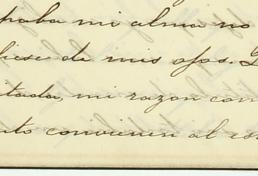 praba mi alma no
liese de mis ojos.
itada, mi razon con
nto convienen al es